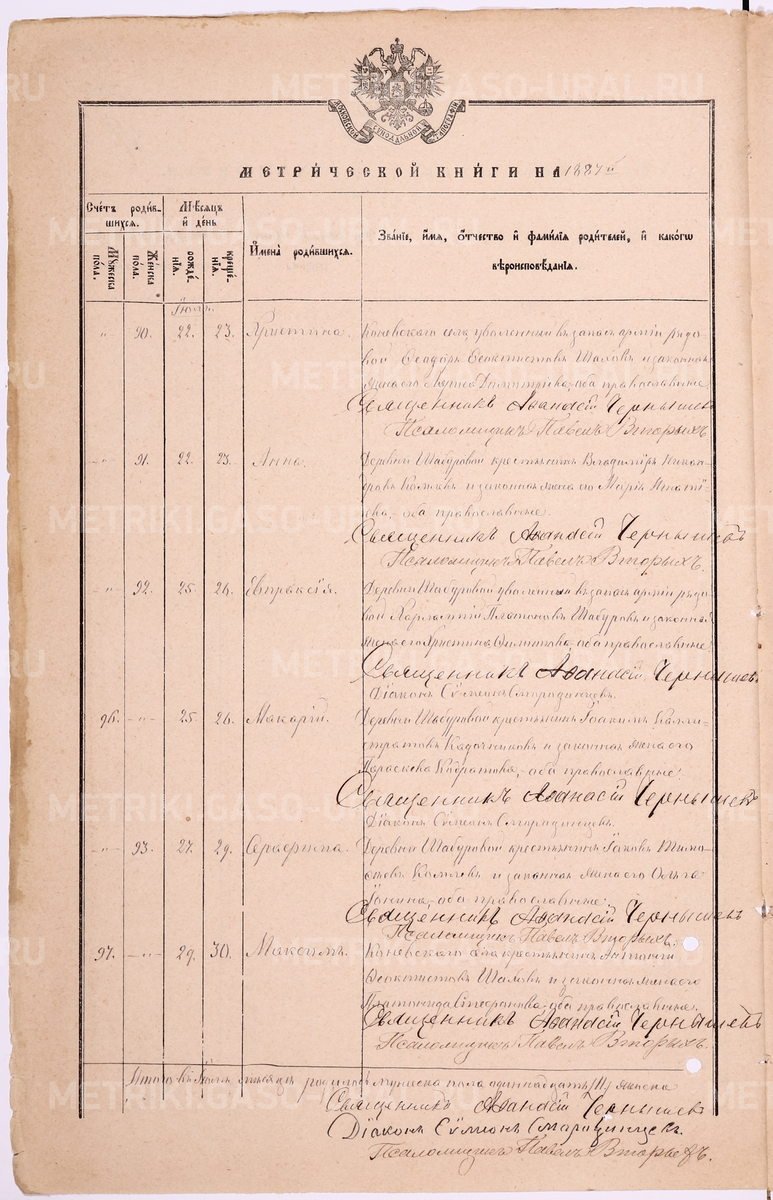 МОСКОВСКОЙ СѴНОДАЛЬНОЙ ТИПОГРАФІИ
МЕТРИ́ЧЕСКОЙ КНИ́ГИ НА 1887
Сче́тъ роди́вшихся.
Мꙋ́жеска по́ла.
Же́нска по́ла.
Мѣ́сѧцъ и҆ де́нь
рожде́нїѧ.
креще́нїѧ.
И҆мена̀ роди́вшихсѧ.
Зва́нїе, и҆́мѧ, ѻ҆́тчество и҆ фами́лїѧ роди́телей, и҆ како́гѡ
вѣроисповѣ́данїѧ.
Іюль
" 90. 22. 23. Христина. Коневскаго села, уволенный въ запасъ арміи рядо-
вой Ѳеодоръ Ѳеоктистовъ Шаловъ и законная
жена его Димитріева, оба православные.
Священникъ Аѳанасій Чернышевъ
Псаломщикъ Павелъ Вторыхъ.
" 91. 22. 23. Анна. Деревни Шабуровой крестьянинъ Владиміръ
и законная жена его Марія Игнаті-
ева, оба православные.
Священникъ Аѳанасій Чернышевъ
Псаломщикъ Павелъ Вторыхъ.
" 92. 25. 26. Евпраксія. Деревни Шабуровой уволенный въ запасъ арміи рядо-
вой Харлампій Платоновъ Шабуровъ и законная
жена его Христина Филиппова, оба православные.
Священникъ Аѳанасій Чернышевъ
Діаконъ Сѵмеонъ
96. " 25 26. Макарій. Деревни Шабуровой крестьянинъ Іоакимъ Калли-
стратовъ Кадочниковъ и законная жена его
Параскева Кодратова, оба православные.
Священникъ Аѳанасій Чернышевъ
Діаконъ Сѵмеонъ
" 93. 27. 29. Серафима. Деревни Шабуровой крестьянинъ Іаковъ Тимо-
ѳеевъ и законная жена его Ольга
Іонина, оба православные.
Священникъ Аѳанасій Чернышевъ
Псаломщикъ Павелъ Вторыхъ.
97. " 29. 30. Максимъ. Коневскаго села крестьянинъ Антоній
Ѳеоктистовъ Шаловъ и законная жена его
Платонида Стефанова, оба православные.
Священникъ Аѳанасій Чернышевъ
Псаломщикъ Павелъ Вторыхъ.
Итого въ Іюлѣ мѣсяцѣ родилось мужеска пола одинадцать (11) женска
Священникъ Аѳанасій Чернышевъ
Діаконъ Сѵмеонъ
Псаломщикъ Павелъ Вторыхъ.
METRIKI.GASO-URAL.RU